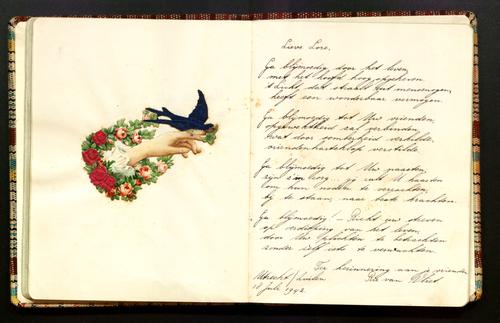 Lieve Lore,
Ga blijmoedig door het leven,
met het hoofd hoog opgeheven
't licht, dat straalt uit menschoogen,
heeft een wonderbaar vermogen.
Ga blijmoedig tot Uw vrienden,
opgewektheid zal verbinden,
wat door somberheid verkilde,
vriendenhartsklop verstilde.
Ga blijmoedig tot Uw naasten,
zijn z'in zorg, gij zult U haasten
om hun noden te verzachten,
bij te staan, naar beste krachten.
Ga blijmoedig! – Richt uw streven
op verdieping van het leven,
door Uw plichten te betrachten
zonder zelf iets te verwachten.
Ter herinnering aan je vriendin
Utrecht/ Rita van Vliet
18 Juli 1942.